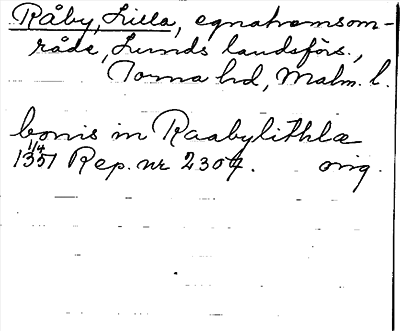 Råby, Lilla, egnahemsom-
råde, Lunds landsförs.,
Torna hd, Malm. l.
bonis in Raabylithlæ
1/4
1351 Rep. nr 2304. orig.